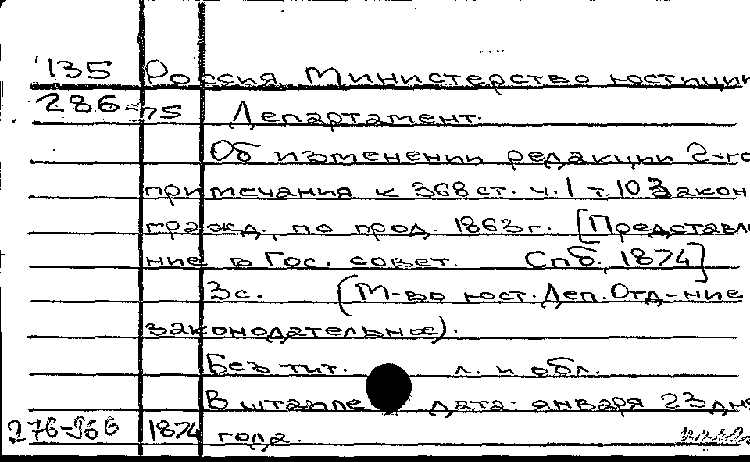 135 Россия. Министерство юстиции
286-75 Департамент.
Об изменении редакции 2-го
примечания к 368 ст. ч. 1 т. 10 Закон
гражд., по прод. 1863 г. [Представле
ние в Гос. совет. Спб., 1874]
3 с. (М-во юст. Деп. Отд-ние
законодательное).
Без тит. л. и обл.
В штампе дата: января 23 дня
276-966 1874 года.